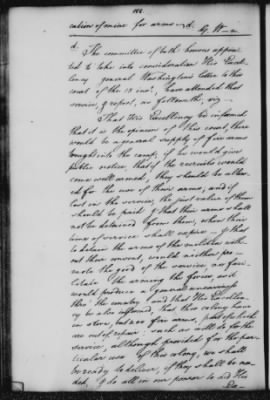 cation of mine for arms &c.
The committee of both houses appoin-
ted to take into consideration His Excel-
lency general Washington's letter to this
court of the 18 inst, have attended that
service, & report, as followeth, viz—
That His Excellency be informed
that it is the opinion of this court, there
would be a general supply of fire arms
brought into the camp, if he would give
public notice, that if the recruits would
come well armed, they should be allow-
ed for the use of their arms; and if
lost in the service, the just value of them
should be paid & that their arms shall
not be detained from them, when their
time of service shall expire — & that
to detain the arms of the militia with-
out their consent, would neither pro-
mote the good of the service, nor faci-
litate the arming the forces, and
would produce a general uneasiness
thro' the country, and that His Excellen-
cy be also informed, that this colony have
in store, but a few fire arms, part of which
are out of repair; such as will do for the
service, although provided for the par-
ticular use of this colony, we shall
be ready to deliver, if they shall be nee-
ded, & do all in our power to aid His
Ex—